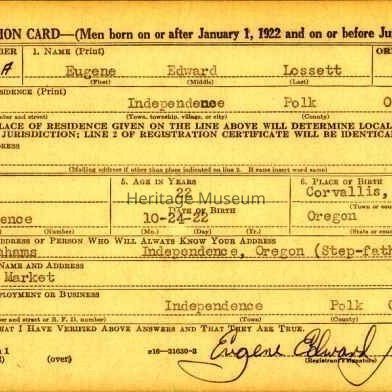 ION CARD—(Men born on or after January 1, 1922 and on or before Ju
1. NAME (Print)
A Eugene Edward Lossett
(First) (Middle) (Last)
RESIDENCE (Print)
Independence Polk O
(Town, township, village, or city) (County)
PLACE OF RESIDENCE GIVEN ON THE LINE ABOVE WILL DETERMINE LOCAL
JURISDICTION; LINE 2 OF REGISTRATION CERTIFICATE WILL BE IDENTICAL
(Mailing address if other than place indicated on line 2. If same insert word same)
5. AGE IN YEARS 6. PLACE OF BIRTH
22 Corvallis,
Heritage Museum
DATE OF BIRTH (Town or county)
ence 10-24-22 Oregon
(Number) (Mo.) (Day) (Yr.) (State or country)
ADDRESS OF PERSON WHO WILL ALWAYS KNOW YOUR ADDRESS
hams Independence, Oregon (Step-fath
NAME AND ADDRESS
Market
EMPLOYMENT OR BUSINESS
Independence Polk
and street or R. F. D. number) (Town) (County)
THAT I HAVE VERIFIED ABOVE ANSWERS AND THAT THEY ARE TRUE.
1 (over) 16—21630-2 Eugene Edward
(Registrant's signature)